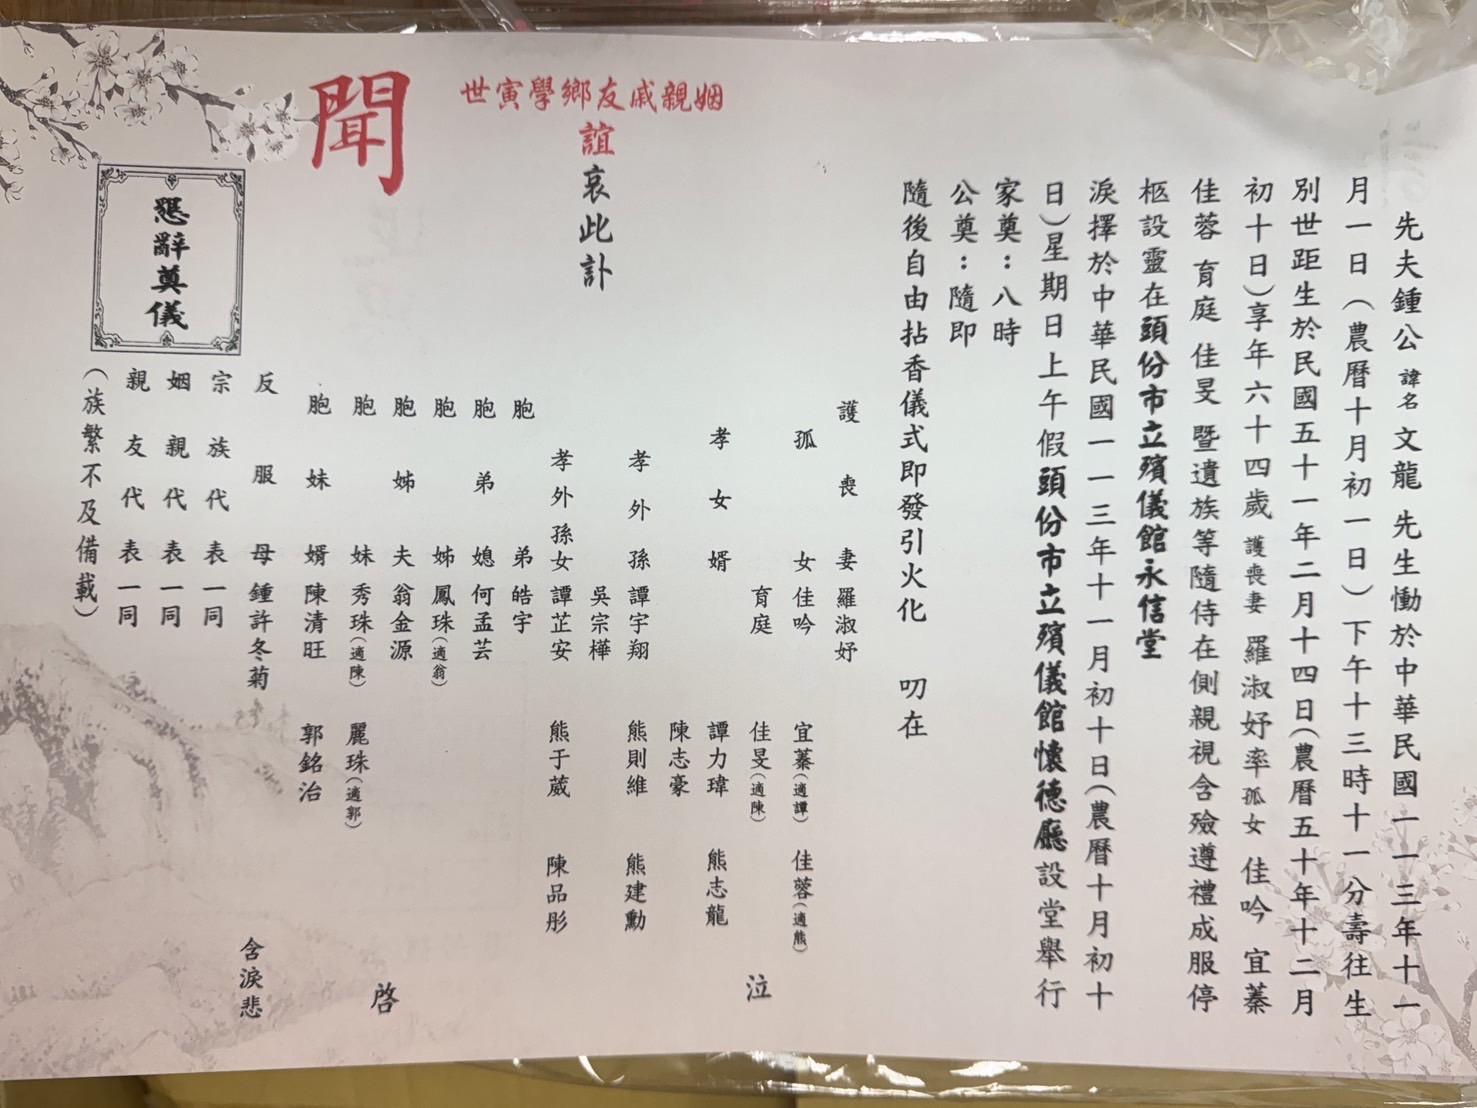 先夫鍾公 諱名 文龍 先生慟於中華民國一一三年十一
月一日（農曆十月初一日）下午十三時十一分壽往生
別世距生於民國五十一年二月十四日(農曆五十年十二月
初十日)享年六十四歲 護喪妻 羅淑妤率 孤女 佳吟 宜蓁
佳蓉 育庭 佳旻 暨遺族等隨侍在側親視含殮遵禮成服停
柩設靈在頭份市立殯儀館永信堂
淚擇於中華民國一一三年十一月初十日(農曆十月初十
日)星期日上午假頭份市立殯儀館懷德廳設堂舉行
家奠：八時
公奠：隨即
隨後自由拈香儀式即發引火化 叨在
姻親戚友鄉學寅世
誼
哀此訃
聞
護喪妻 羅淑妤
孤女 佳吟 宜蓁(適譚) 佳蓉(適熊)
育庭 佳旻(適陳)
孝女婿 譚力瑋 熊志龍
陳志豪
孝外孫 譚宇翔 熊則維 熊建勳
吳宗樺
孝外孫女 譚芷安 熊于葳 陳品彤
泣
胞弟 皓宇
胞弟媳 何孟芸
胞姊 鳳珠(適翁)
胞姊夫 翁金源
胞妹 秀珠(適陳) 麗珠(適郭)
胞妹婿 陳清旺 郭銘治
啓
反服母 鍾許冬菊 含淚悲
宗族代表一同
姻親代表一同
親友代表一同
（族繁不及備載）
懇辭奠儀